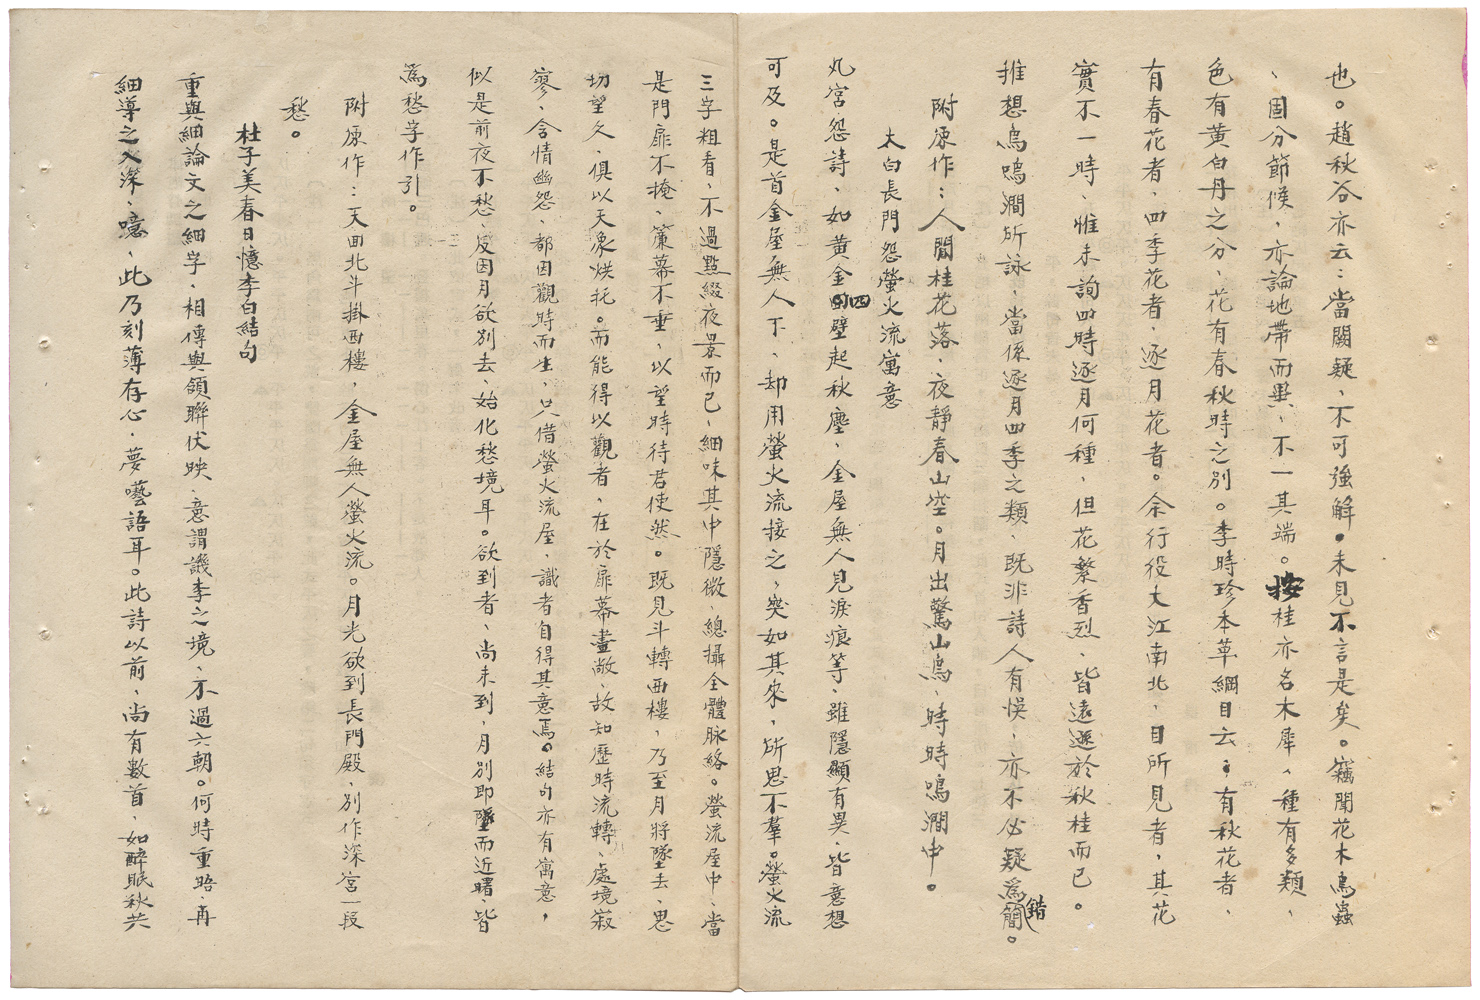 也。趙秋谷亦云：當闕疑、不可強解。未見不言是矣。竊聞花木鳥蟲
、固分節候，亦論地帶而異，不一其端。按桂亦名木犀、種有多類，
色有黃白丹之分、花有春秋時之別。李時珍本草綱目云：有秋花者，
有春花者，四季花者，逐月花者。余行役大江南北，目所見者，其花
實不一時、惟未詢四時逐月何種，但花繁香烈、皆遠遜於秋桂而已。
推想鳥鳴澗所詠，當係逐月四季之類、既非詩人有悞，亦不必疑爲錯簡。
附原作：人閒桂花落、夜靜春山空。月出驚山鳥、時時鳴澗中。
太白長門怨螢火流寓意
丸宮怨詩、如黃金四壁起秋塵，金屋無人見淚痕等、雖隱顯有異、皆意想
可及。是首金屋無人下、却用螢火流接之，突如其來，所思不羣。螢火流
三字粗看、不過點綴夜景而已，細味其中隱微、總攝全體脉絡。螢流屋中、當
是門扉不掩、簾幕不垂、以望時待君使然。既見斗轉西樓，乃至月將墜去、思
切望久、俱以天象烘托。而能得以觀者、在於扉幕盡敞、故知歷時流轉、處境寂
寥、含情幽怨、都因觀時而生，只借螢火流屋，識者自得其意焉。結句亦有寓意，
似是前夜不愁、反因月欲別去、始化愁境耳。欲到者、尚未到，月別即墜而近曙、皆
爲愁字作引。
附原作：天回北斗掛西樓，金屋無人螢火流。月光欲到長門殿、別作深宮一段
愁。
杜子美春日憶李白結句
重與細論文之細字、相傳與領聯伏映、意謂譏李之境、不過六朝。何時重晤、再
細導之入深、噫、此乃刻薄存心、夢囈語耳。此詩以前、尚有數首、如醉眠秋共